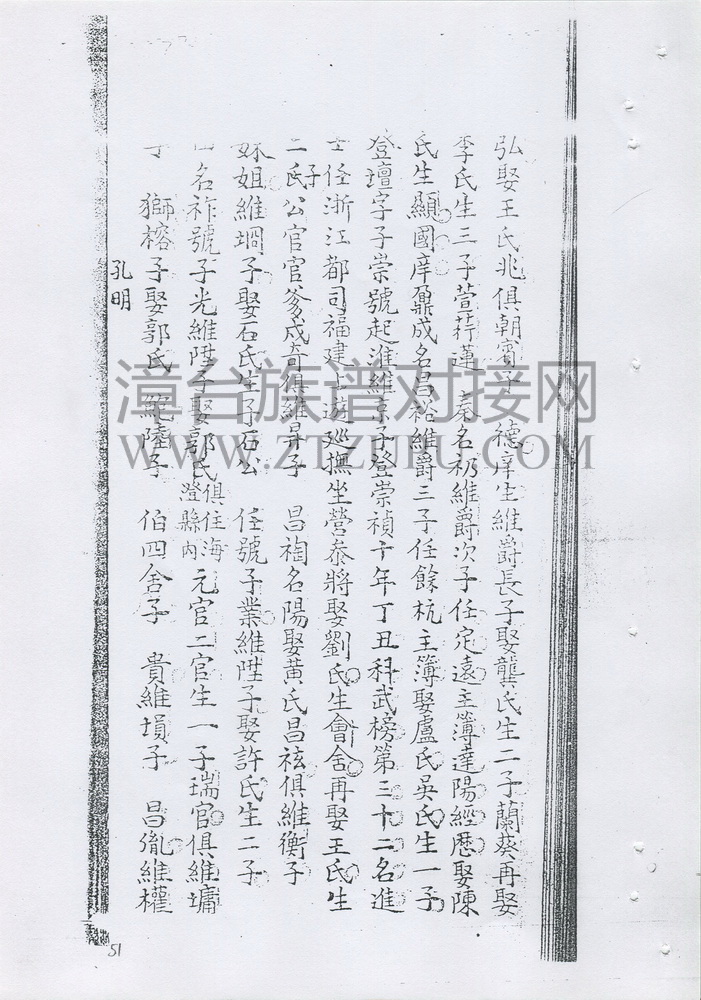 弘娶王氏兆俱朝賓子　德庠生維爵長子娶龔氏生二子蘭葵再娶
李氏生三子萱荇蓮　名礽維爵次子任定遠主簿達陽經歷娶陳
氏生顯國庠鼐成名昌裕維爵三子任餘杭主簿娶盧氏吳氏生一子
登壇字子崇號起淮維京子登崇禎十年丁丑科武榜第三十二名進
士任浙江都司福建上遊廵撫坐營叅將娶劉氏生會舍再娶王氏生
二子氏公官官爹成奇俱維昇子　昌裪名陽娶黃氏昌祓俱維衡子
妹姐維堈子娶石氏生子石公　任號子業維陞子娶許氏生二子
名祚號子光維陞子娶郭氏俱住海澄縣內元官二官生一子瑞官俱維墉
子　獅榕子娶郭氏　子　伯四舍子　貴維塤子　昌胤維權
孔明
漳台族谱对接网
WWW.ZTZUPU.COM
51